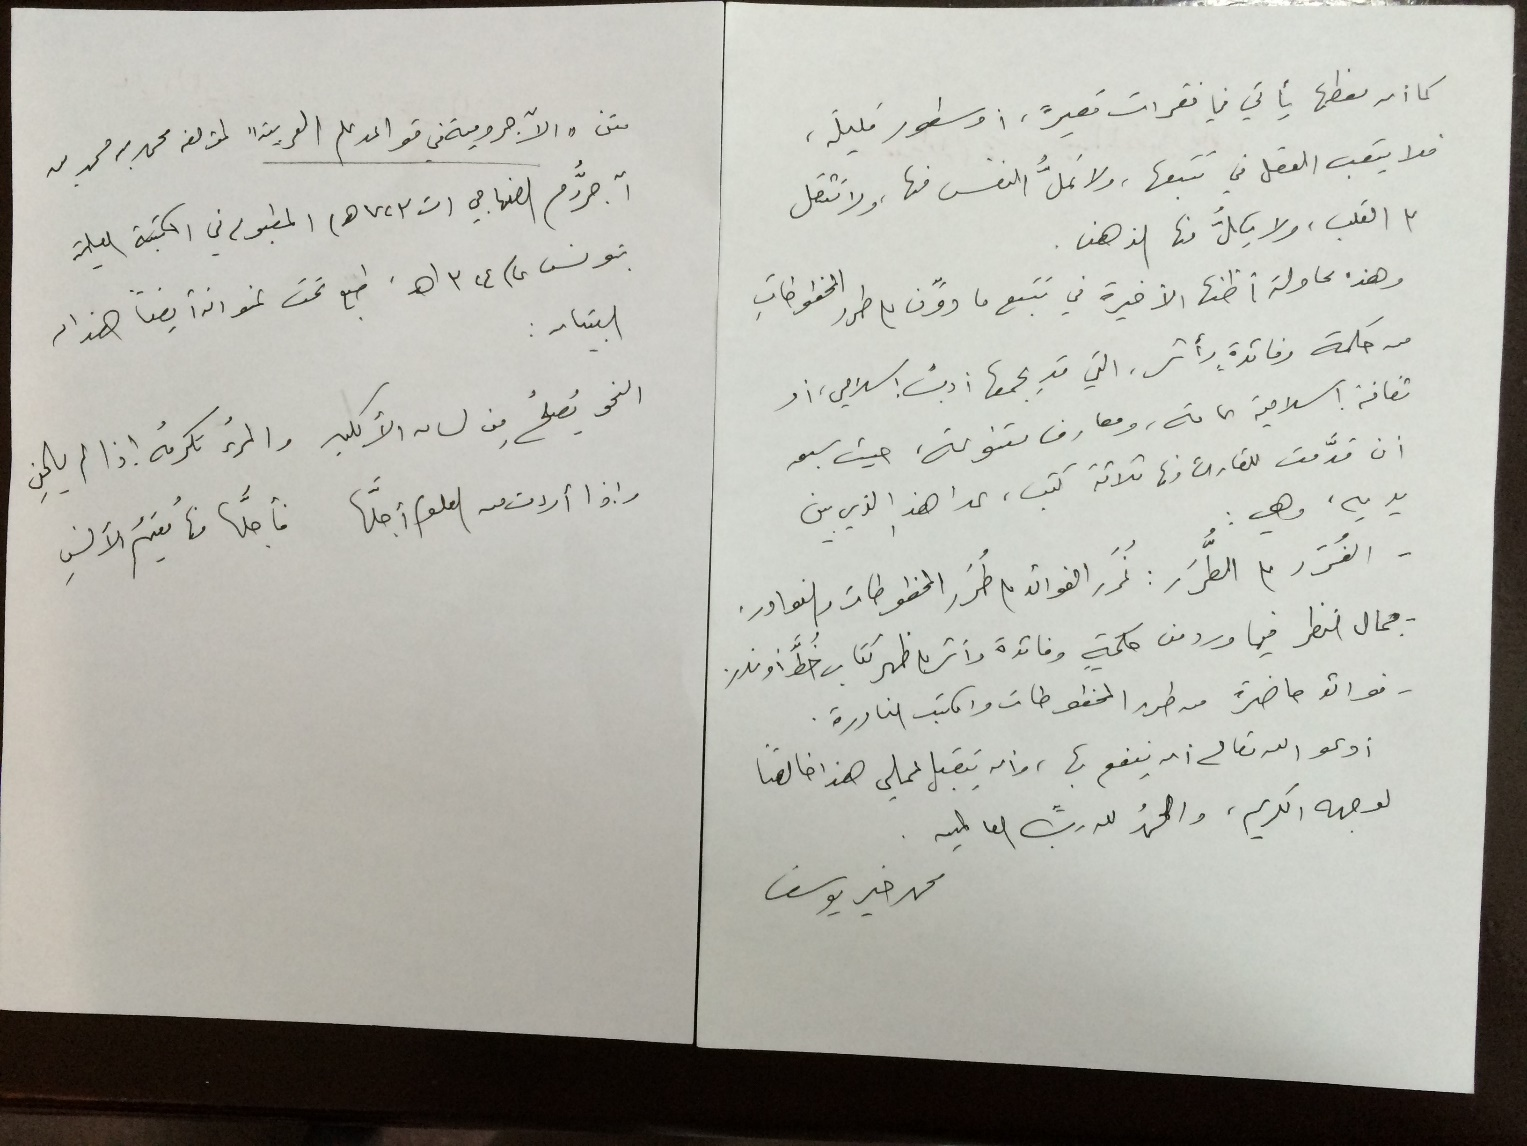 كما أن معظمها يأتي في فقرات قصيرة، أو سطور قليلة،
فلا يتعب العقل في تتبعها، ولا تملُّ النفس منها، ولا تثقل
على القلب، ولا يكلُّ منها الذهن.
وهذه محاولة أظنها الأخيرة في تتبع ما دوِّن على طرر المخطوطات
من حكمة وفائدةٍ وأثر، التي قد يجمعها أدبٌ إسلامي، أو
ثقافة إسلامية عامة، ومعارف متنوعة، حيث سبق
أن قدَّمت للقارئ منها ثلاثة كتب، عدا هذا الذي بين
يديه، وهي:
- الغُرَر على الطُّرَر: غُرَر الفوائد على طُرَر المخطوطات والنوادر.
- مجال النظر فيما ورد من حكمةٍ وفائدة وأثر على ظهر كتاب خُطَّ أو ندر.
- فوائد حاضرة من طرر المخطوطات والكتب النادرة.
أدعو الله تعالى أن ينفع بها، وأن يتقبل عملي هذا خالصًا
لوجهه الكريم، والحمدُ لله ربِّ العالمين.
محمد خير يوسف
متن "الآجرومية في قواعد علم العربية" لمؤلفه محمد بن محمد بن
آجرُّوم الصنهاجي (ت ٧٢٣هـ) المطبوع في المكتبة العلمية
بتونس عام ١٣٤٠هـ، طبع تحت عنوانه أيضًا هذان
البيتان:
النحو يُصلحُ مِن لسان الألكنِ والمرءُ تكرمهُ إذا لم يلحنِ
وإذا أردت من العلوم أجلَّها فأجلُّها منها مُقيمُ الألسنِ